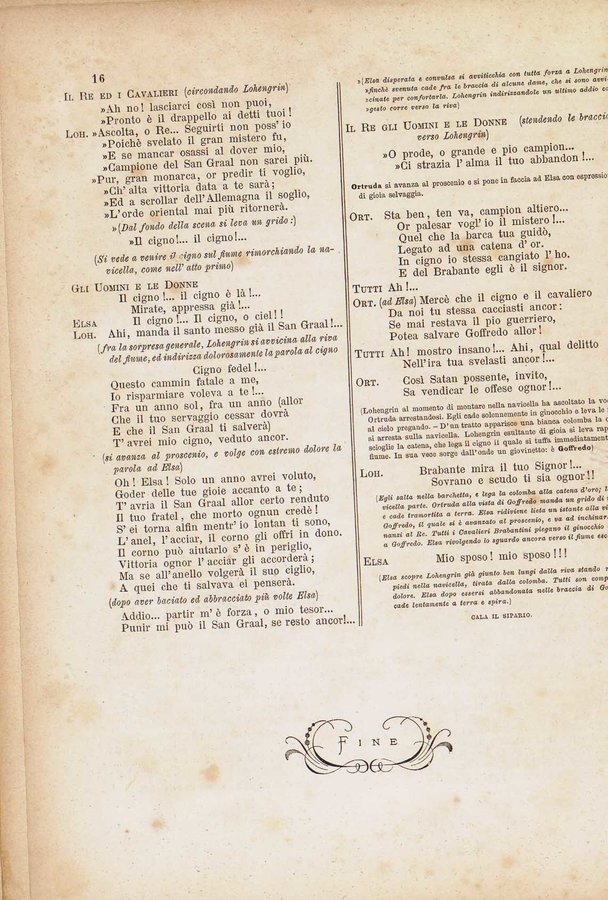 16
IL RE ED I CAVALIERI (circondando Lohengrin)
»Ah no! lasciarci così non puoi,
»Pronto è il drappello ai detti tuoi!
LOH. »Ascolta, o Re... Seguirti non poss' io
»Poichè svelato il gran mistero fu,
»E se mancar osassi al dover mio,
»Campione del San Graal non sarei più.
»Pur, gran monarca, or predir ti voglio,
»Ch' alta vittoria data a te sarà;
»Ed a scrollar dell'Allemagna il soglio,
»L'orde oriental mai più ritornerà.
»(Dal fondo della scena si leva un grido:)
»Il cigno!... il cigno!...
(Si vede a venire il cigno sul fiume rimorchiando la na-
vicella, come nell' atto primo)
GLI UOMINI E LE DONNE
Il cigno!... il cigno è là!...
Mirate, appressa già!...
ELSA Il cigno!... Il cigno, o ciel!!
LOH. Ahi, manda il santo messo già il San Graal!...
(fra la sorpresa generale, Lohengrin si avvicina alla riva
del fiume, ed indirizza dolorosamente la parola al cigno
Cigno fedel!...
Questo cammin fatale a me,
Io risparmiare voleva a te!...
Fra un anno sol, fra un anno (allor
Che il tuo servaggio cessar dovrà
E che il San Graal ti salverà)
T' avrei mio cigno, veduto ancor.
(si avanza al proscenio, e volge con estremo dolore la
parola ad Elsa)
Oh! Elsa! Solo un anno avrei voluto,
Goder delle tue gioie accanto a te;
T' avria il San Graal allor certo renduto
Il tuo fratel, che morto ognun credè!
S' ei torna alfin mentr' io lontan ti sono,
L' anel, l' acciar, il corno gli offri in dono.
Il corno può aiutarlo s' è in periglio,
Vittoria ognor l' acciar gli accorderà;
Ma se all'anello volgerà il suo ciglio,
A quei che ti salvava ei penserà.
(dopo aver baciato ed abbracciato più volte Elsa)
Addio... partir m' è forza, o mio tesor...
Punir mi può il San Graal, se resto ancor!...
»(Elsa disperata e convulsa si avviticchia con tutta forza a Lohengrin
»finchè svenuta cade fra le braccia di alcune dame, che si sono avvi-
»cinate per confortarla. Lohengrin indirizzandole un ultimo addio co
»gesto corre verso la riva)
IL RE GLI UOMINI E LE DONNE (stendendo le braccia
verso Lohengrin)
»O prode, o grande e pio campion...
»Ci strazia l' alma il tuo abbandon!...
Ortruda si avanza al proscenio e si pone in faccia ad Elsa con espressio
di gioia selvaggia.
ORT. Sta ben, ten va, campion altiero...
Or palesar vogl' io il mistero!...
Quel che la barca tua guidò,
Legato ad una catena d' or.
In cigno io stessa cangiato l' ho.
E del Brabante egli è il signor.
TUTTI Ah!...
ORT. (ad Elsa) Mercè che il cigno e il cavaliero
Da noi tu stessa cacciasti ancor:
Se mai restava il pio guerriero,
Potea salvare Goffredo allor!
TUTTI Ah! mostro insano!... Ahi, qual delitto
Nell'ira tua svelasti ancor!...
ORT. Così Satan possente, invito,
Sa vendicar le offese ognor!...
(Lohengrin al momento di montare nella navicella ha ascoltato la vo
Ortruda arrestandosi. Egli cade solennemente in ginocchio e leva le
al cielo pregando. - D' un tratto apparisce una bianca colomba la
si arresta sulla navicella. Lohengrin esultante di gioia si leva rap
scioglie la catena, che lega il cigno il quale si tuffa immediatament
fiume. In sua vece sorge dall'onde un giovinetto: è Goffredo)
LOH. Brabante mira il tuo Signor!...
Sovrano e scudo ti sia ognor!!
(Egli salta nella barchetta, e lega la colomba alla catena d'oro;
vicella parte. Ortruda alla vista di Goffredo manda un grido di
e cade tramortita a terra. Elsa ridiviene lieta un istante alla vi
Goffredo, il quale si è avanzato al proscenio, e va ad inchinar
nanzi al Re. Tutti i Cavalieri Brabantini piegano il ginocchio
a Goffredo. Elsa rivolgendo lo sguardo ancora verso il fiume esc
ELSA Mio sposo! mio sposo!!!
(Elsa scopre Lohengrin già giunto ben lungi dalla riva stando
piedi nella navicella, tirata dalla colomba. Tutti son comp
dolore. Elsa dopo essersi abbandonata nelle braccia di Go
cade lentamente a terra e spira.)
CALA IL SIPARIO.
FINE